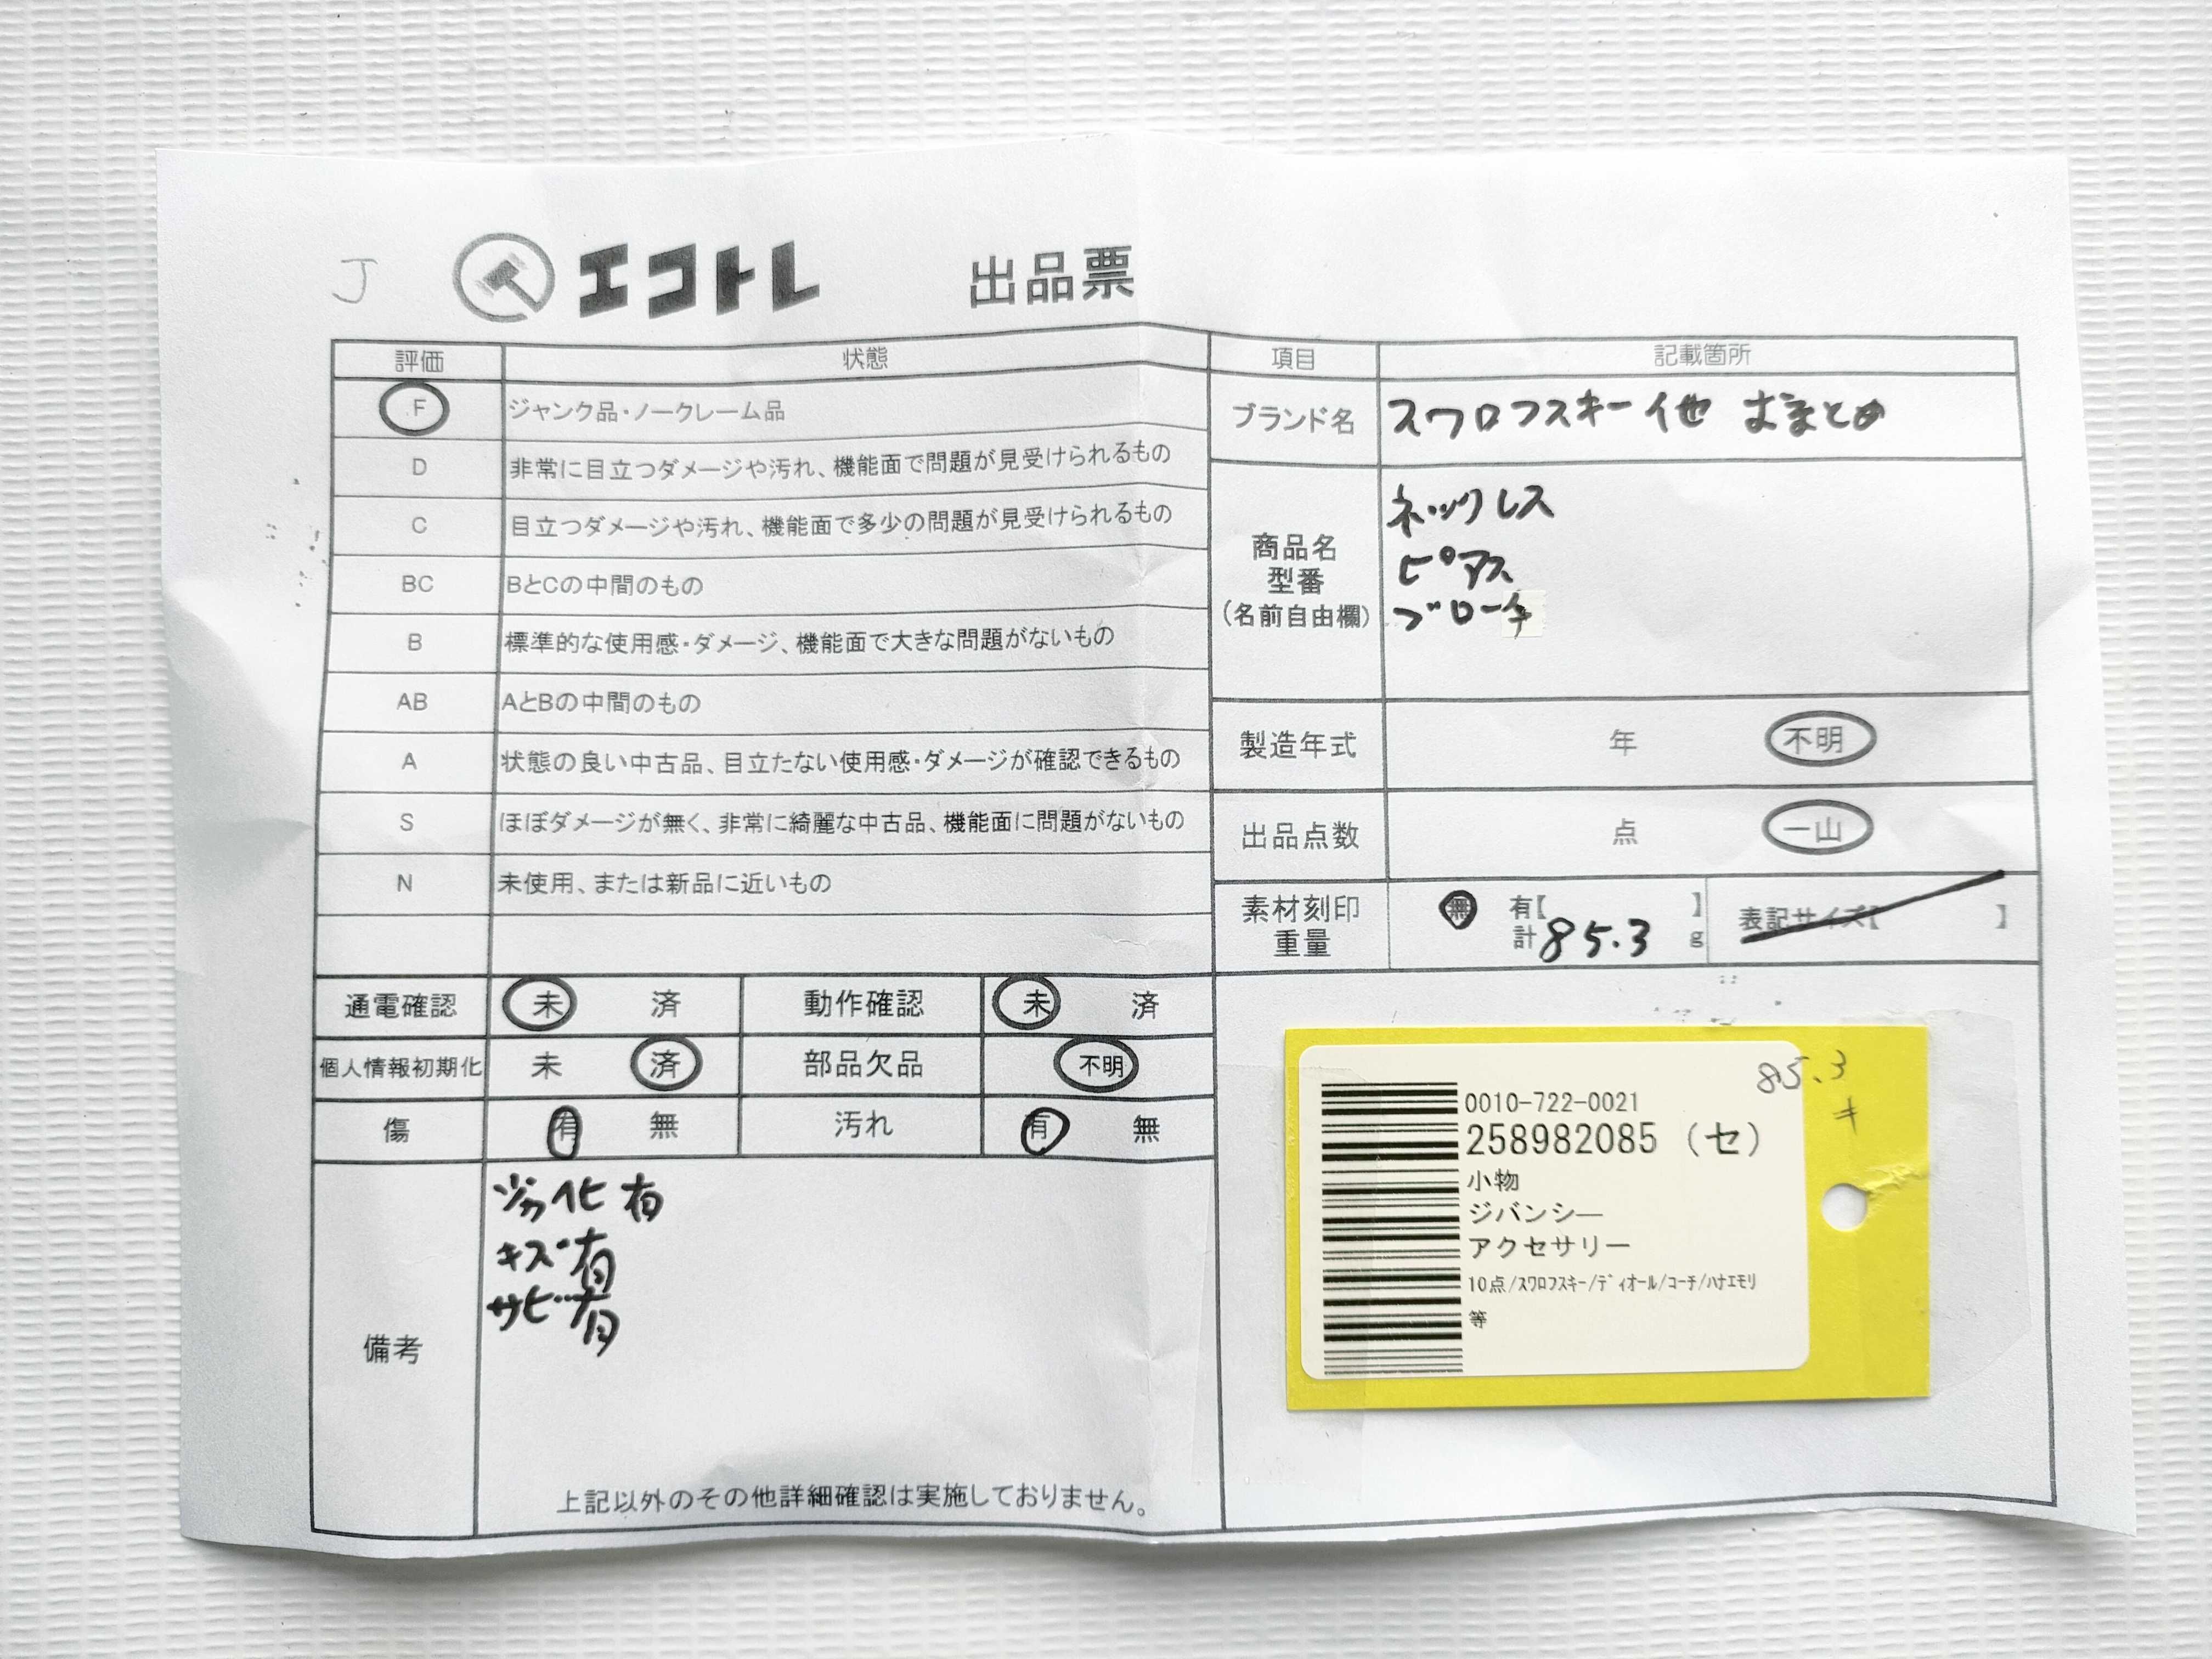 J エコトレ 出品票
評価 状態 項目 記載箇所
F ジャンク品・ノークレーム品
D 非常に目立つダメージや汚れ、機能面で問題が見受けられるもの
C 目立つダメージや汚れ、機能面で多少の問題が見受けられるもの
BC BとCの中間のもの
B 標準的な使用感・ダメージ、機能面で大きな問題がないもの
AB AとBの中間のもの
A 状態の良い中古品、目立たない使用感・ダメージが確認できるもの
S ほぼダメージが無く、非常に綺麗な中古品、機能面に問題がないもの
N 未使用、または新品に近いもの
ブランド名 スワロフスキー他 おまとめ
商品名
型番
(名前自由欄)
ネックレス
ピアス
ブローチ
製造年式 年 不明
出品点数 点 一山
素材刻印
重量
無 有【 】
計 85.3 g
表記サイズ【 】
通電確認 未 済 動作確認 未 済
個人情報初期化 未 済 部品欠品 不明
傷 有 無 汚れ 有 無
備考
劣化有
キズ有
サビ有
上記以外のその他詳細確認は実施しておりません。
85.3
キ
0010-722-0021
258982085 (セ)
小物
ジバンシー
アクセサリー
10点/ｽﾜﾛﾌｽｷｰ/ﾃﾞｨｵｰﾙ/ｺｰﾁ/ﾊﾅｴﾓﾘ
等